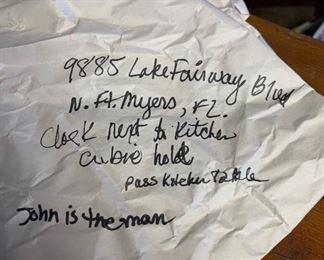 9885 Lake Fairway Blvd
N. Ft. Myers, FL.
Clock next to Kitchen
cubie hole
pass Kitchen table
John is the man